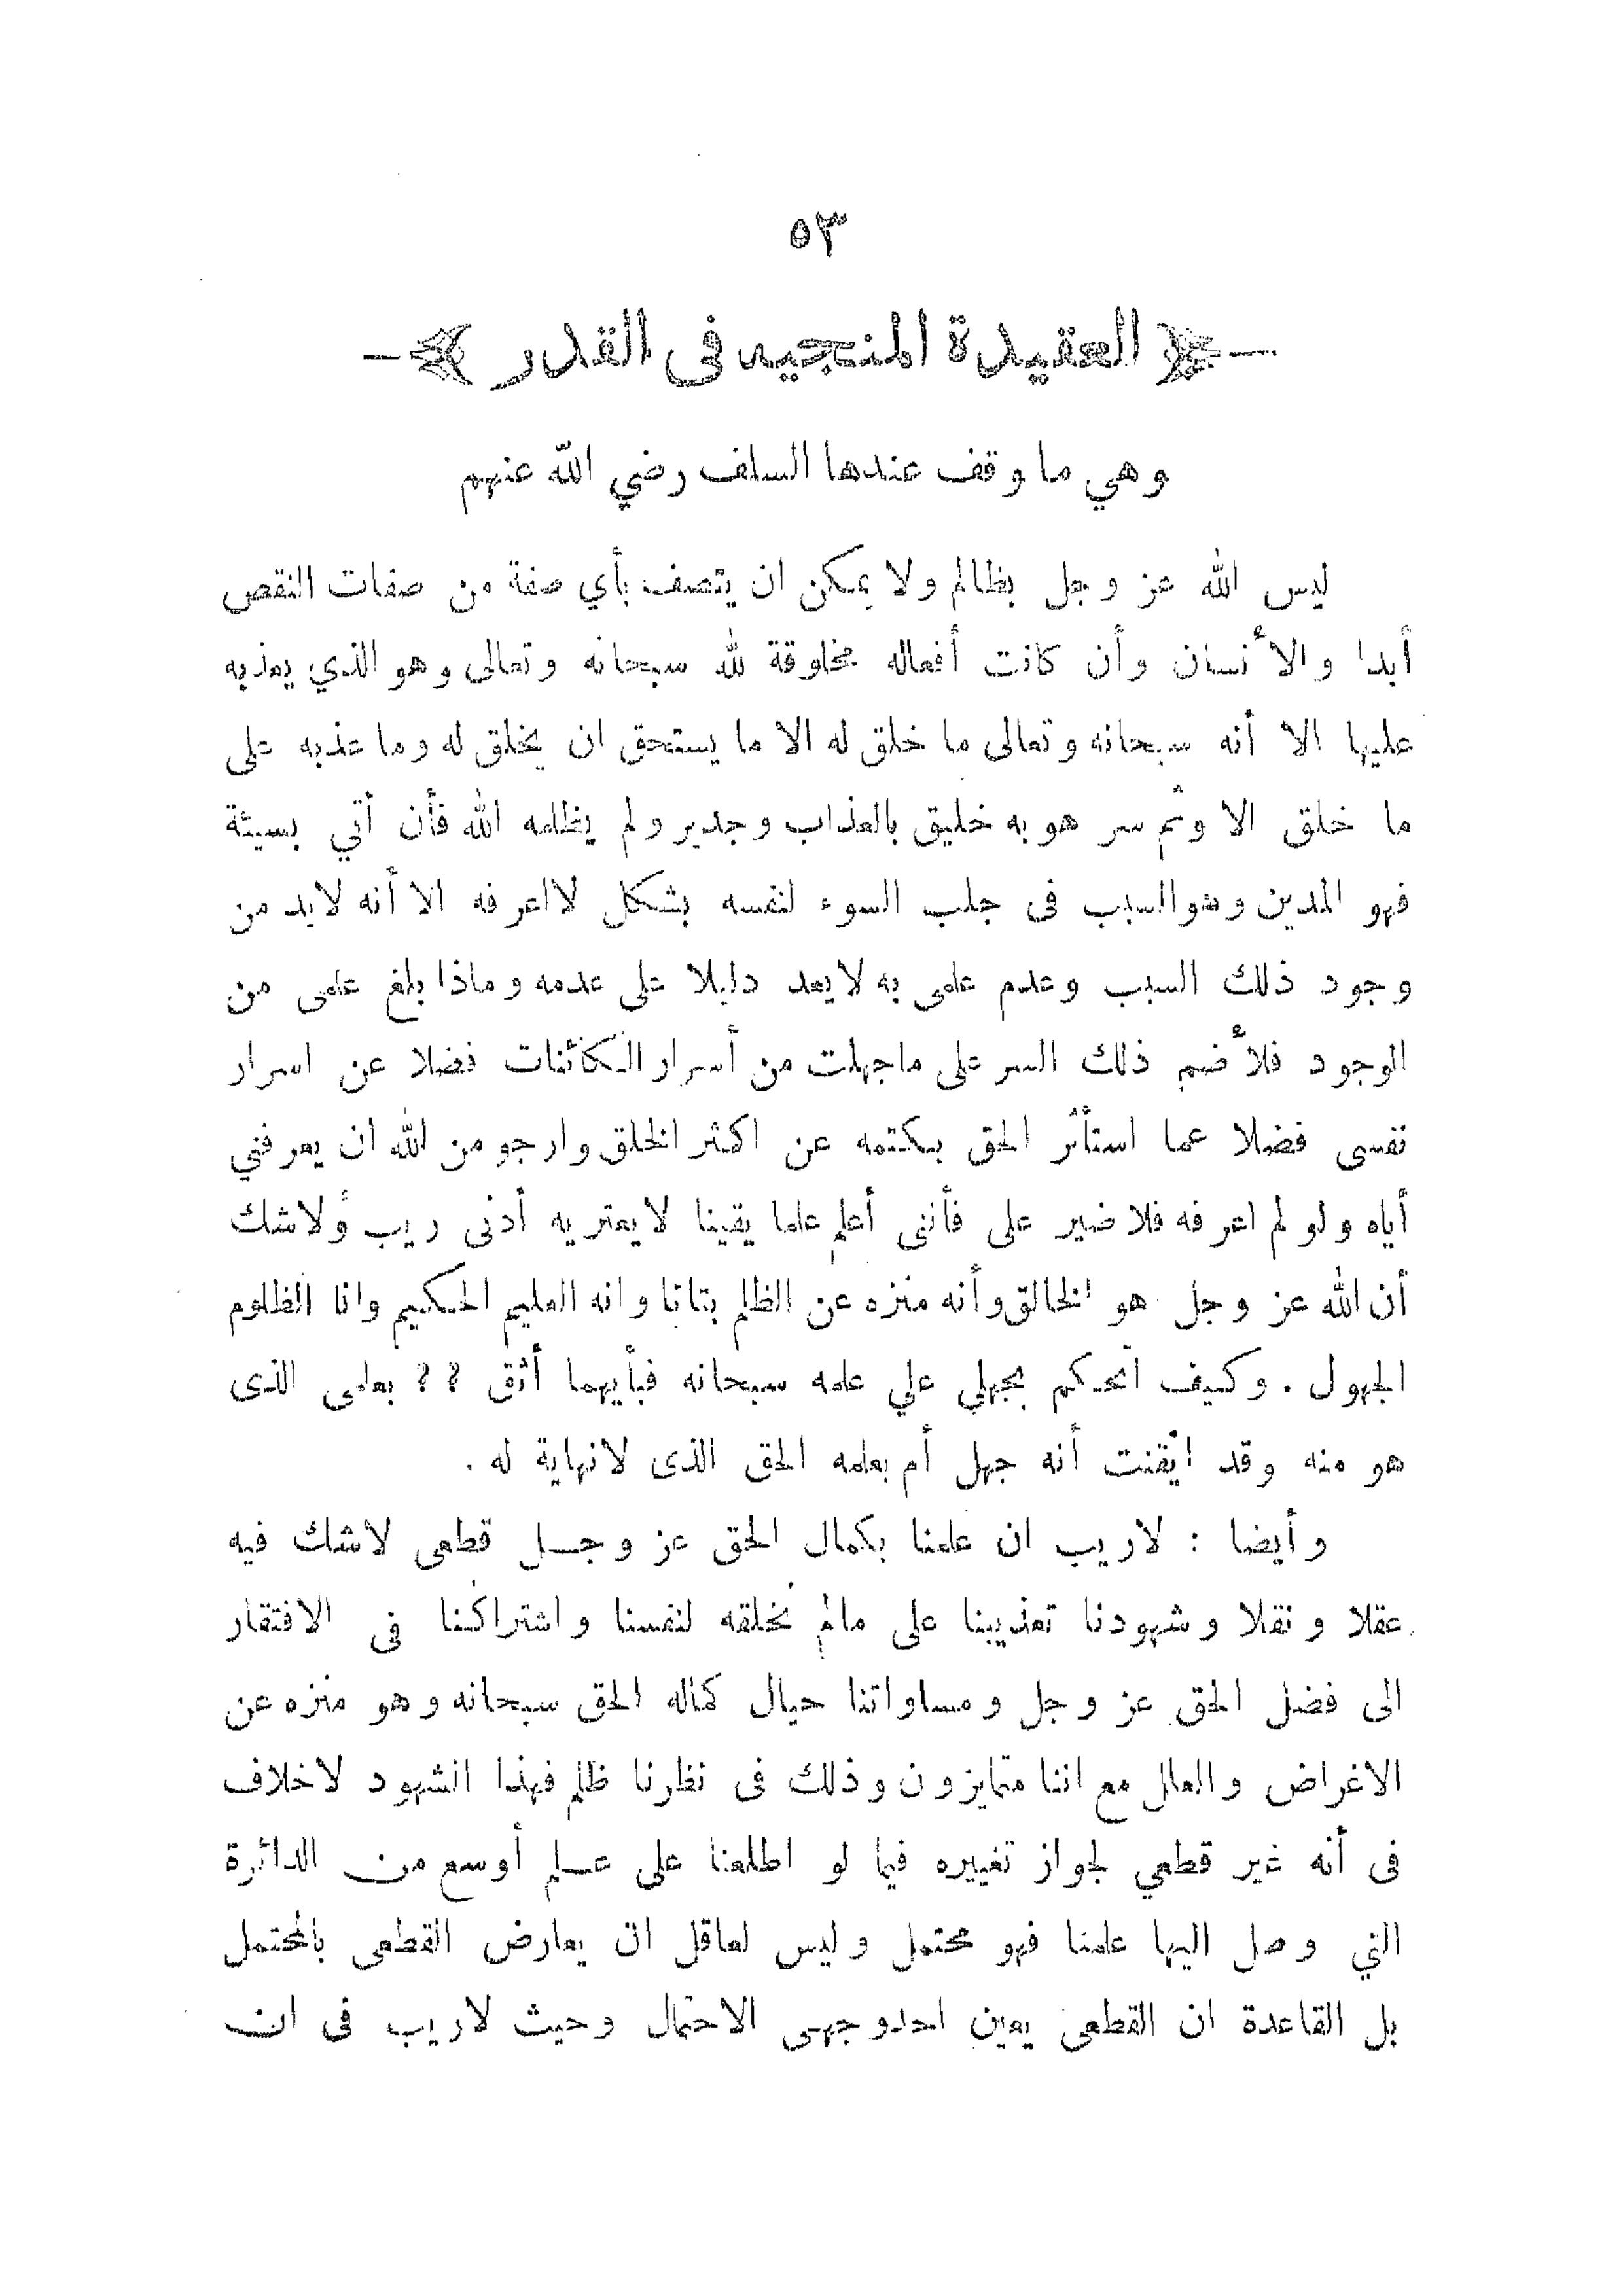 ٥٣
العقيدة المنجيه فى القدر
وهي ما وقف عندها السلف رضي الله عنهم
ليس الله عز وجل بظالم ولا يمكن ان يتصف بأي صفة من صفات النقص
أبدا والأ نسان وأن كانت أفعاله مخلوقة لله سبحانه وتعالى وهو الذي يعذبه
عليها الا أنه سبحانه وتعالى ما خلق له الا ما يستحق ان يخلق له وما عذبه على
ما خلق الا وثم سر هو به خليق بالعذاب وجدير ولم يظلمه الله فأن أتي بسيئة
فهو المدين وهو السبب فى جلب السوء لنفسه بشكل لااعرفه الا أنه لابد من
وجود ذلك السبب وعدم علمى به لا يعد دليلا على عدمه وماذا بلغ علمى من
الوجود فلأضم ذلك السر على ماجهلت من أسرار الكائنات فضلا عن اسرار
نفسى فضلا عما استأثر الحق بكتمه عن اكثر الخلق وارجو من الله ان يعرفني
أياه ولو لم اعرفه فلا ضير على فأننى أعلم علما يقينا لا يعتريه أدنى ريب ولاشك
أن الله عز وجل هو الخالق وأنه منزه عن الظلم بتاتا وانه العليم الحكيم وانا الظلوم
الجهول . وكيف اتحكم بجهلي علي علمه سبحانه فبأيهما أثق ؟ ؟ بعلمى الذى
هو منه وقد ايقنت أنه جهل أم بعلمه الحق الذى لانهاية له .
وأيضا : لاريب ان علمنا بكمال الحق عز وجل قطعى لاشك فيه
عقلا ونقلا وشهودنا تعذيبنا على مالم نخلقه لنفسنا واشتراكنا فى الافتقار
الى فضل الحق عز وجل ومساواتنا حيال كماله الحق سبحانه وهو منزه عن
الاغراض والعلل مع اننا متمايزون وذلك فى نظرنا ظلم فهذا الشهود لاخلاف
فى أنه غير قطعي لجواز تغييره فيما لو اطلعنا على علم أوسع من الدائرة
التي وصل اليها علمنا فهو محتمل وليس لعاقل ان يعارض القطعى بالمحتمل
بل القاعدة ان القطعى يعين احدوجهى الاحتمال وحيث لاريب فى ان